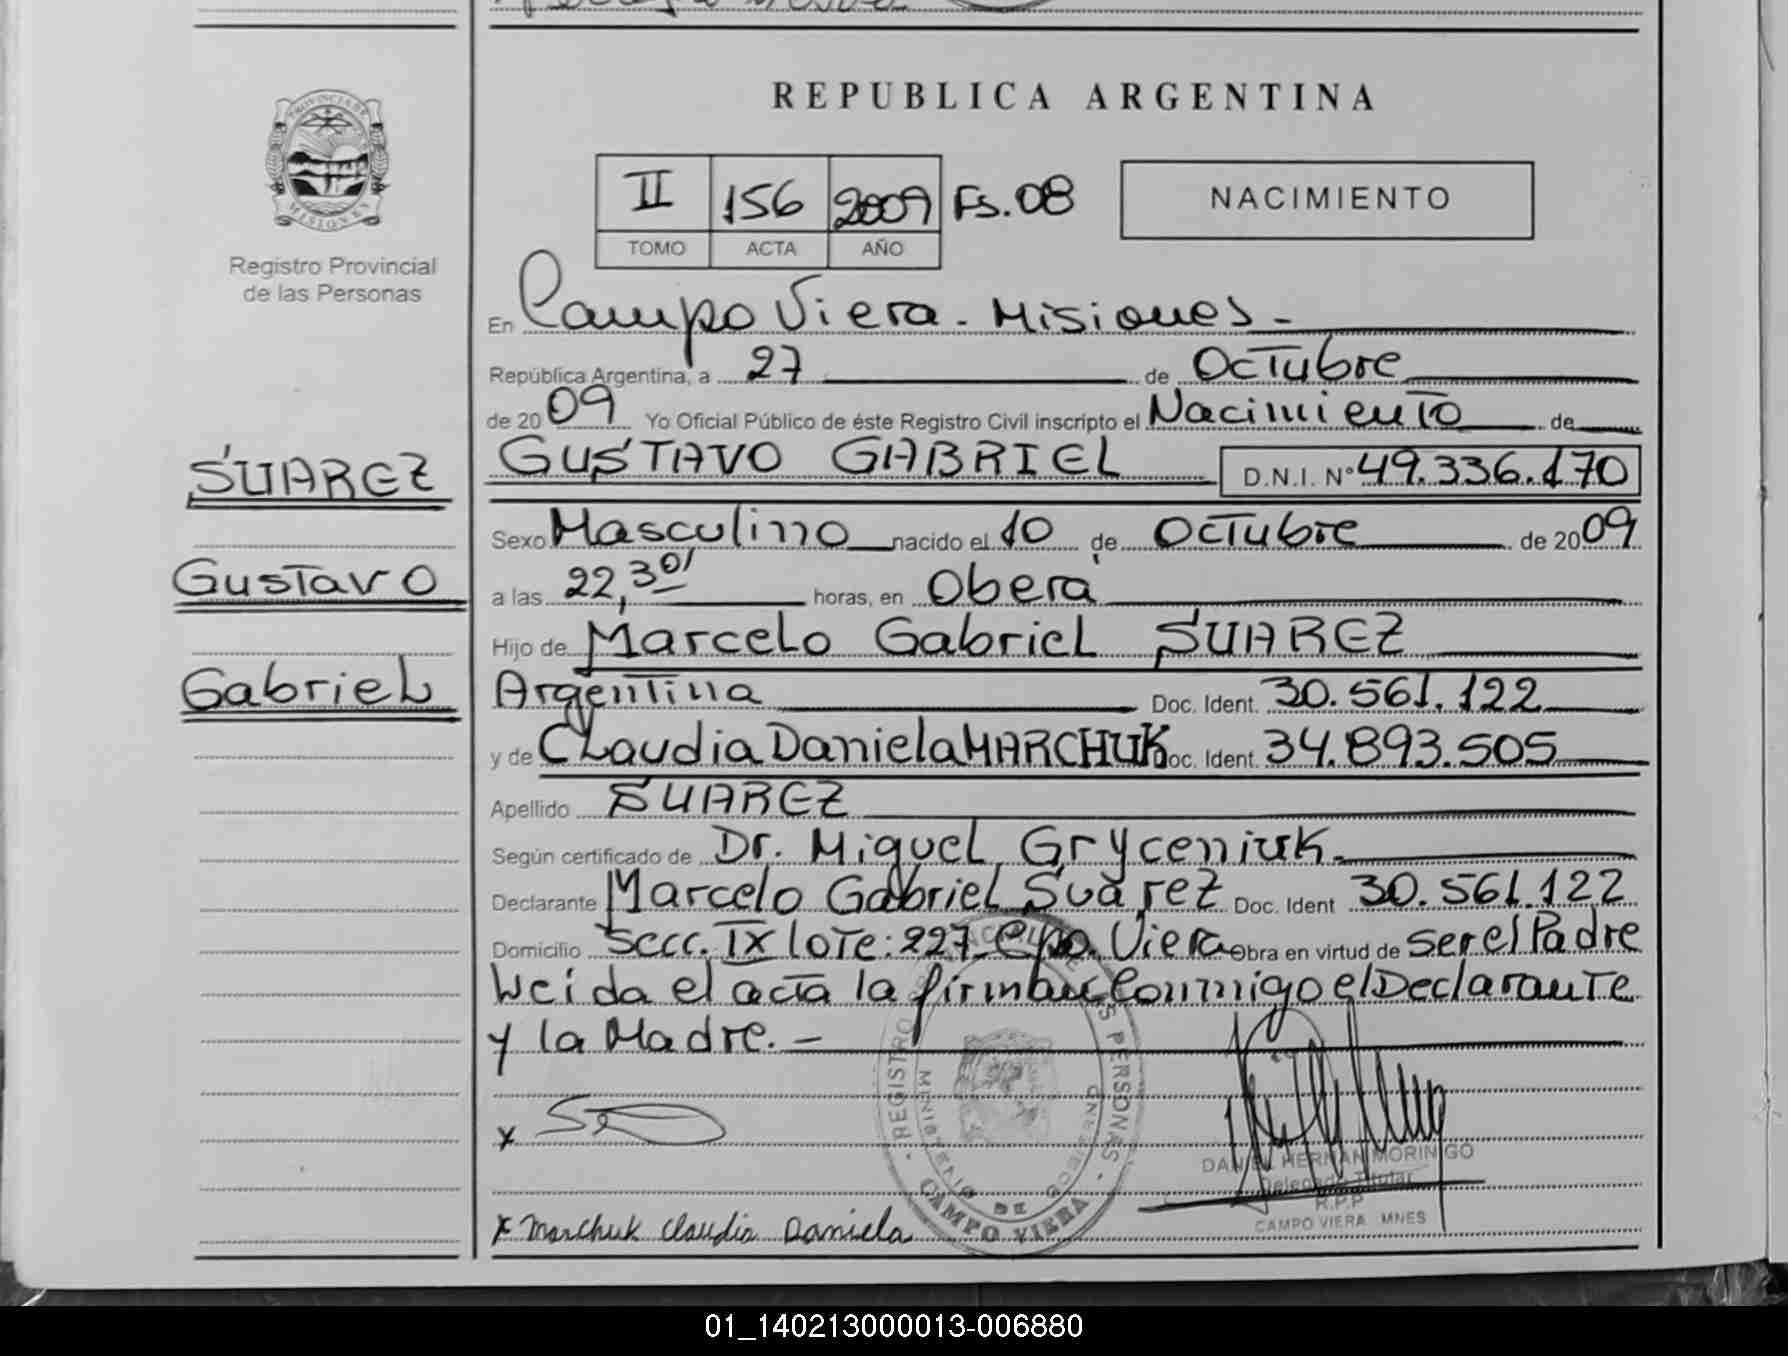 REPUBLICA ARGENTINA
PROVINCIA DE
MISIONES
Registro Provincial
de las Personas
II 156 2009 Fs. 08
TOMO ACTA AÑO
NACIMIENTO
En Campo Viera - Misiones -
República Argentina, a 27 de Octubre
de 2009 Yo Oficial Público de éste Registro Civil inscripto el Nacimiento de
SUAREZ
GUSTAVO GABRIEL D.N.I. Nº 49.336.170
Sexo Masculino nacido el 10 de Octubre de 2009
Gustavo
a las 22,30' horas, en Oberá
Hijo de Marcelo Gabriel SUAREZ
Gabriel
Argentina Doc. Ident. 30.561.122
y de Claudia Daniela MARCHUK Doc. Ident. 34.893.505
Apellido SUAREZ
Según certificado de Dr. Miguel Gryceniuk.
Declarante Marcelo Gabriel Suárez Doc. Ident 30.561.122
Domicilio Secc. IX lote: 227 - Cpo. Viera Obra en virtud de ser el Padre
Leida el acta la firman Conmigo el Declarante
y la Madre. -
x
REGISTRO DE LAS PERSONAS
MINISTERIO DE GOBIERNO
CAMPO VIERA
DANIEL HERNAN MORINIGO
Delegado Titular
R.P.P
CAMPO VIERA MNES
x Marchuk Claudia Daniela
01_140213000013-006880